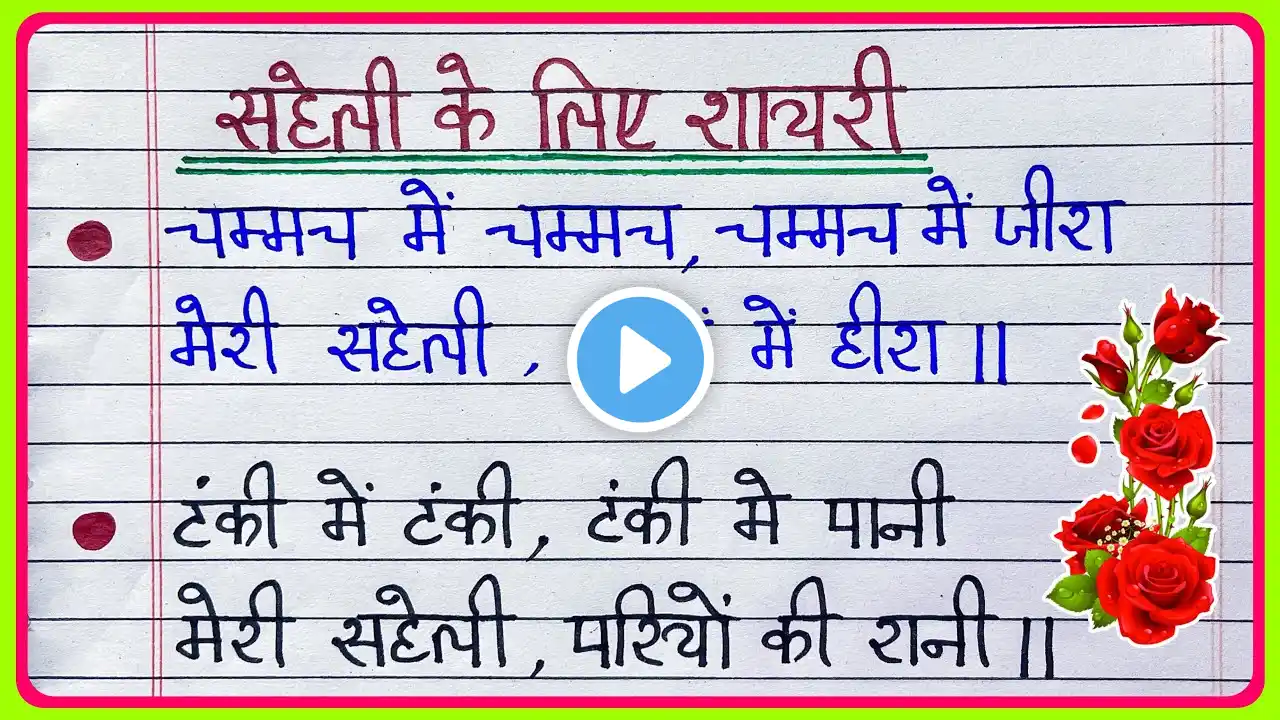 सहेली के लिए शायरी
चम्मच में चम्मच, चम्मच में जीरा
मेरी सहेली, में हीरा ||
टंकी में टंकी, टंकी मे पानी
मेरी सहेली, परियों की रानी ||